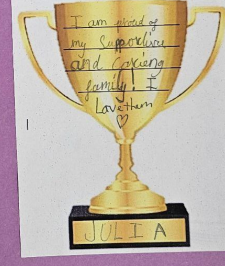 I am proud of
my supportive
and Caring
family. I
Love them
JULIA